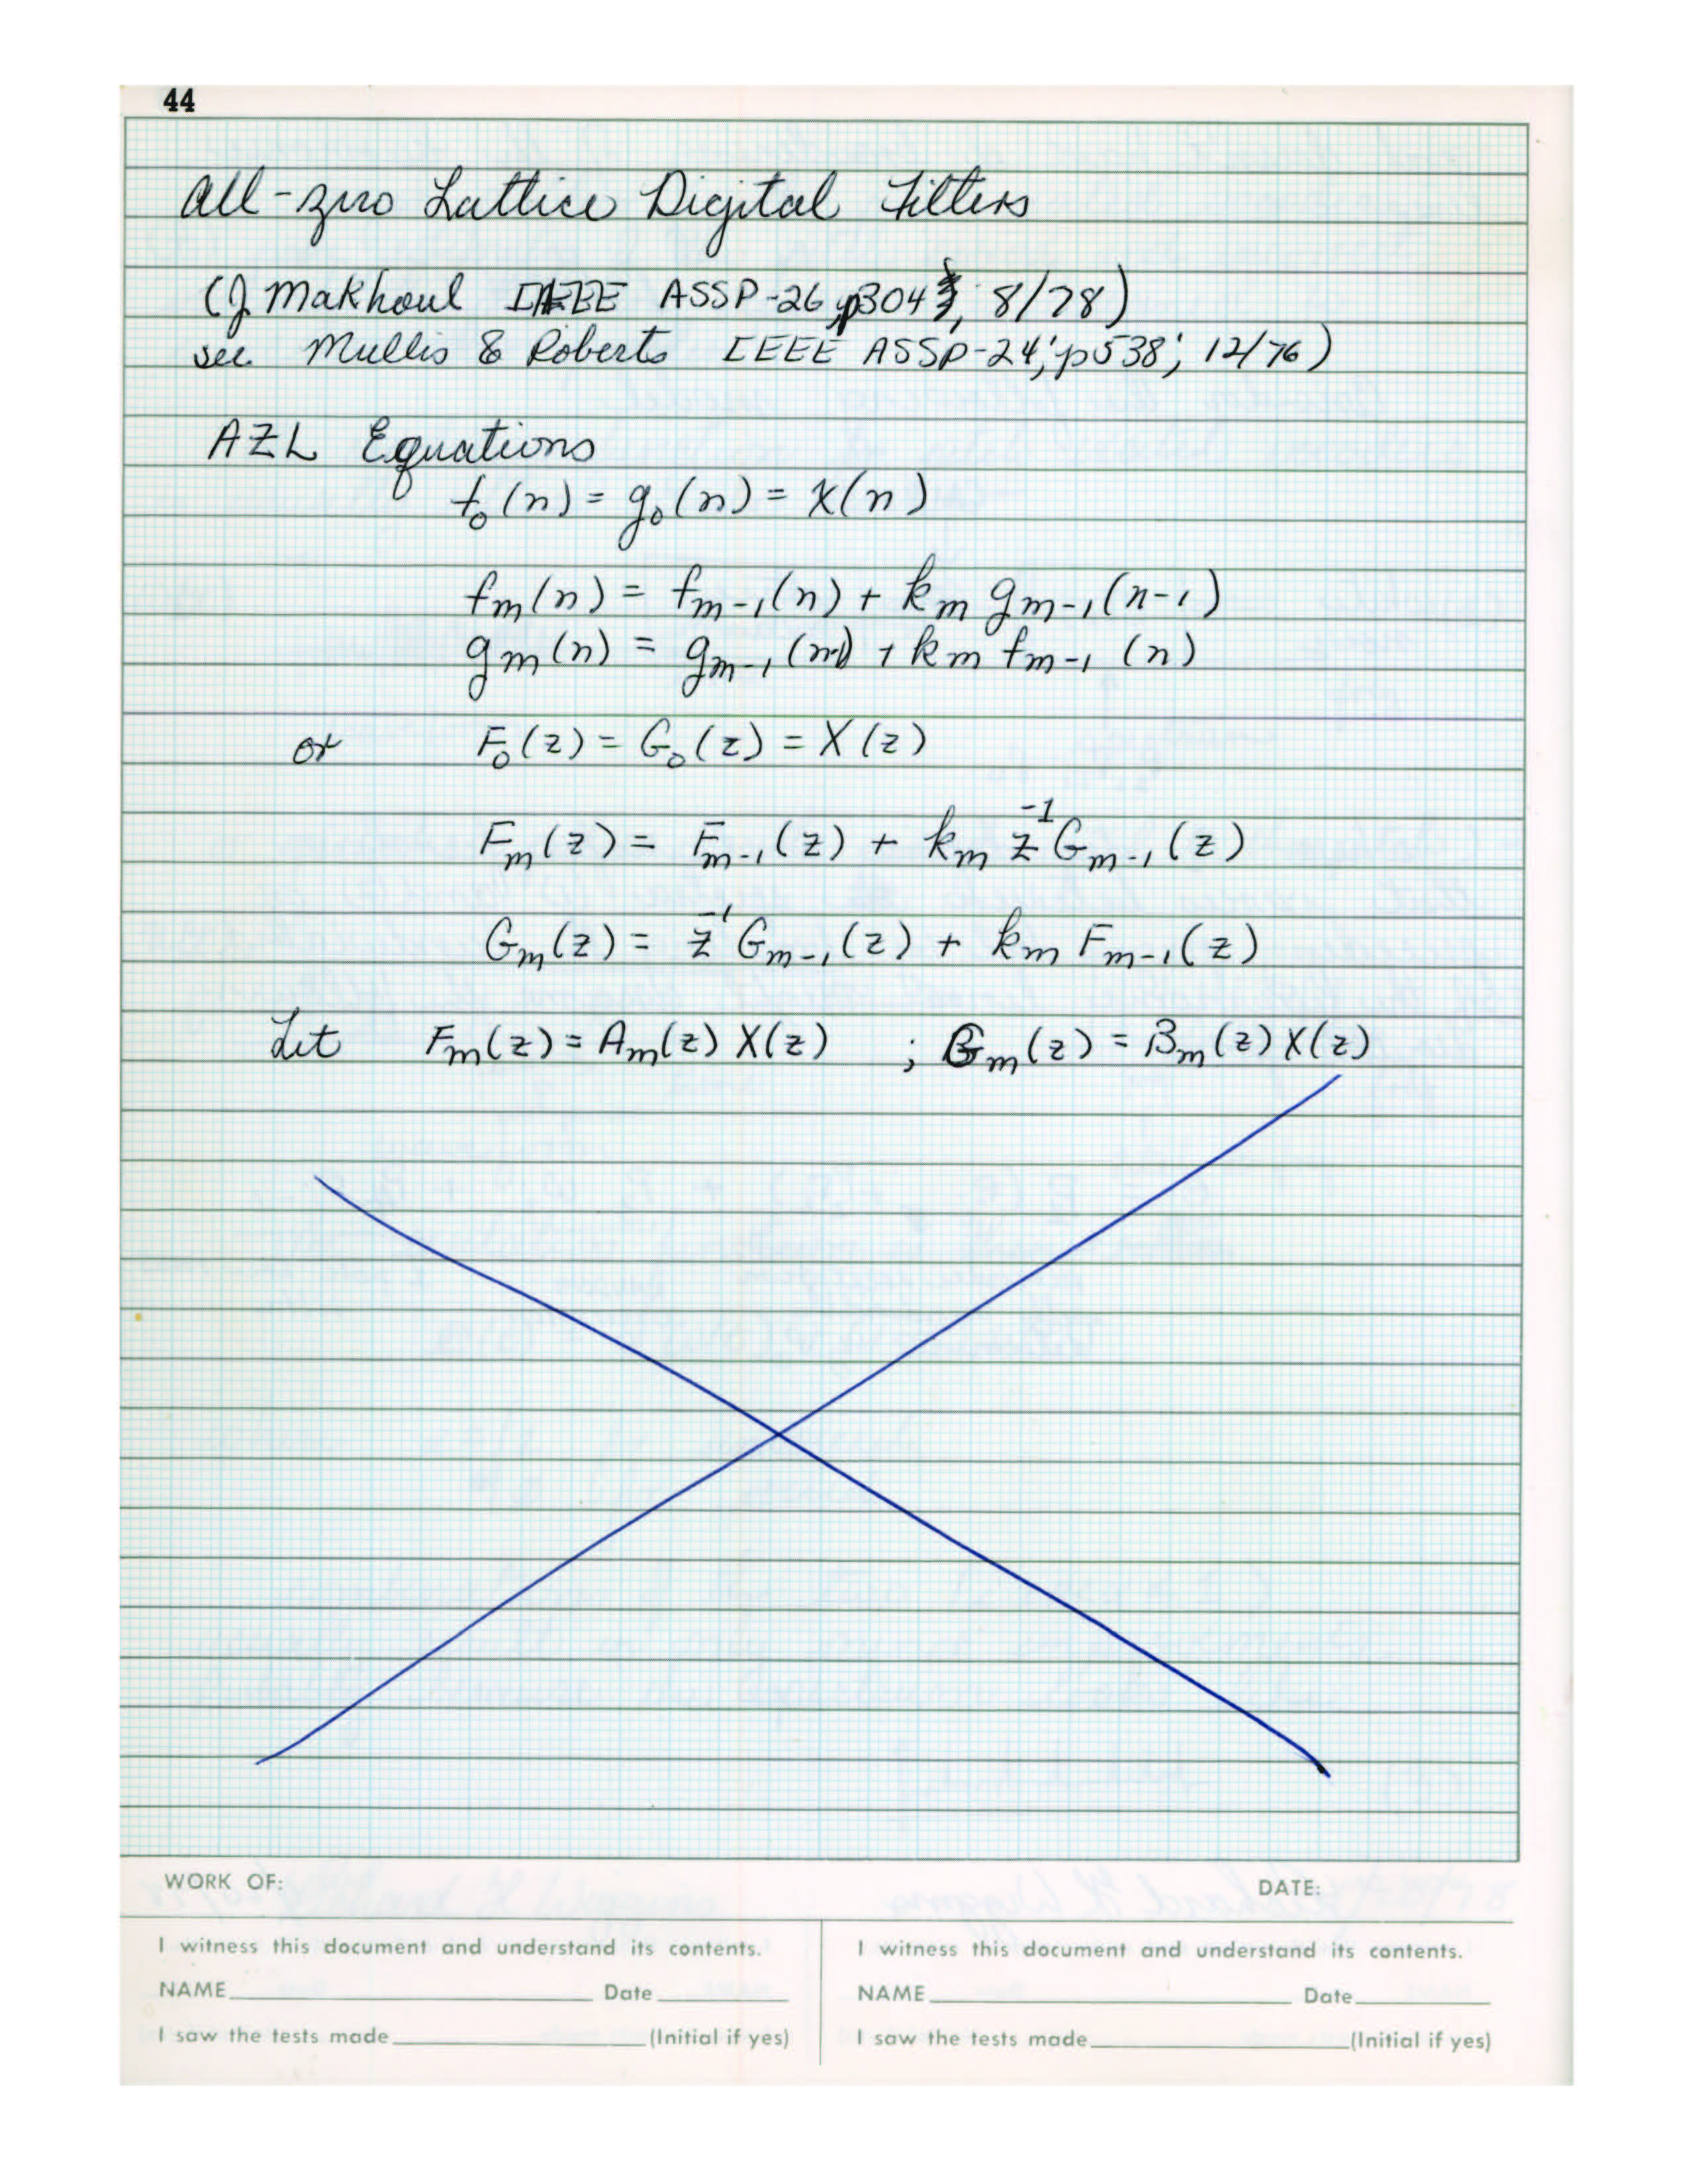 44
All-zero Lattice Digital Filters
(J Makhoul IEEE ASSP-26, p304, 8/78)
see Mullis & Roberts IEEE ASSP-24; p538; 12/76)
AZL Equations
f₀(n) = g₀(n) = X(n)
fₘ(n) = fₘ₋₁(n) + kₘ gₘ₋₁(n-1)
gₘ(n) = gₘ₋₁(n-1) + kₘ fₘ₋₁(n)
or F₀(z) = G₀(z) = X(z)
Fₘ(z) = Fₘ₋₁(z) + kₘ z⁻¹Gₘ₋₁(z)
Gₘ(z) = z⁻¹Gₘ₋₁(z) + kₘ Fₘ₋₁(z)
Let Fₘ(z) = Aₘ(z) X(z) ; Gₘ(z) = Bₘ(z) X(z)
WORK OF: DATE:
I witness this document and understand its contents. I witness this document and understand its contents.
NAME Date NAME Date
I saw the tests made (Initial if yes) I saw the tests made (Initial if yes)